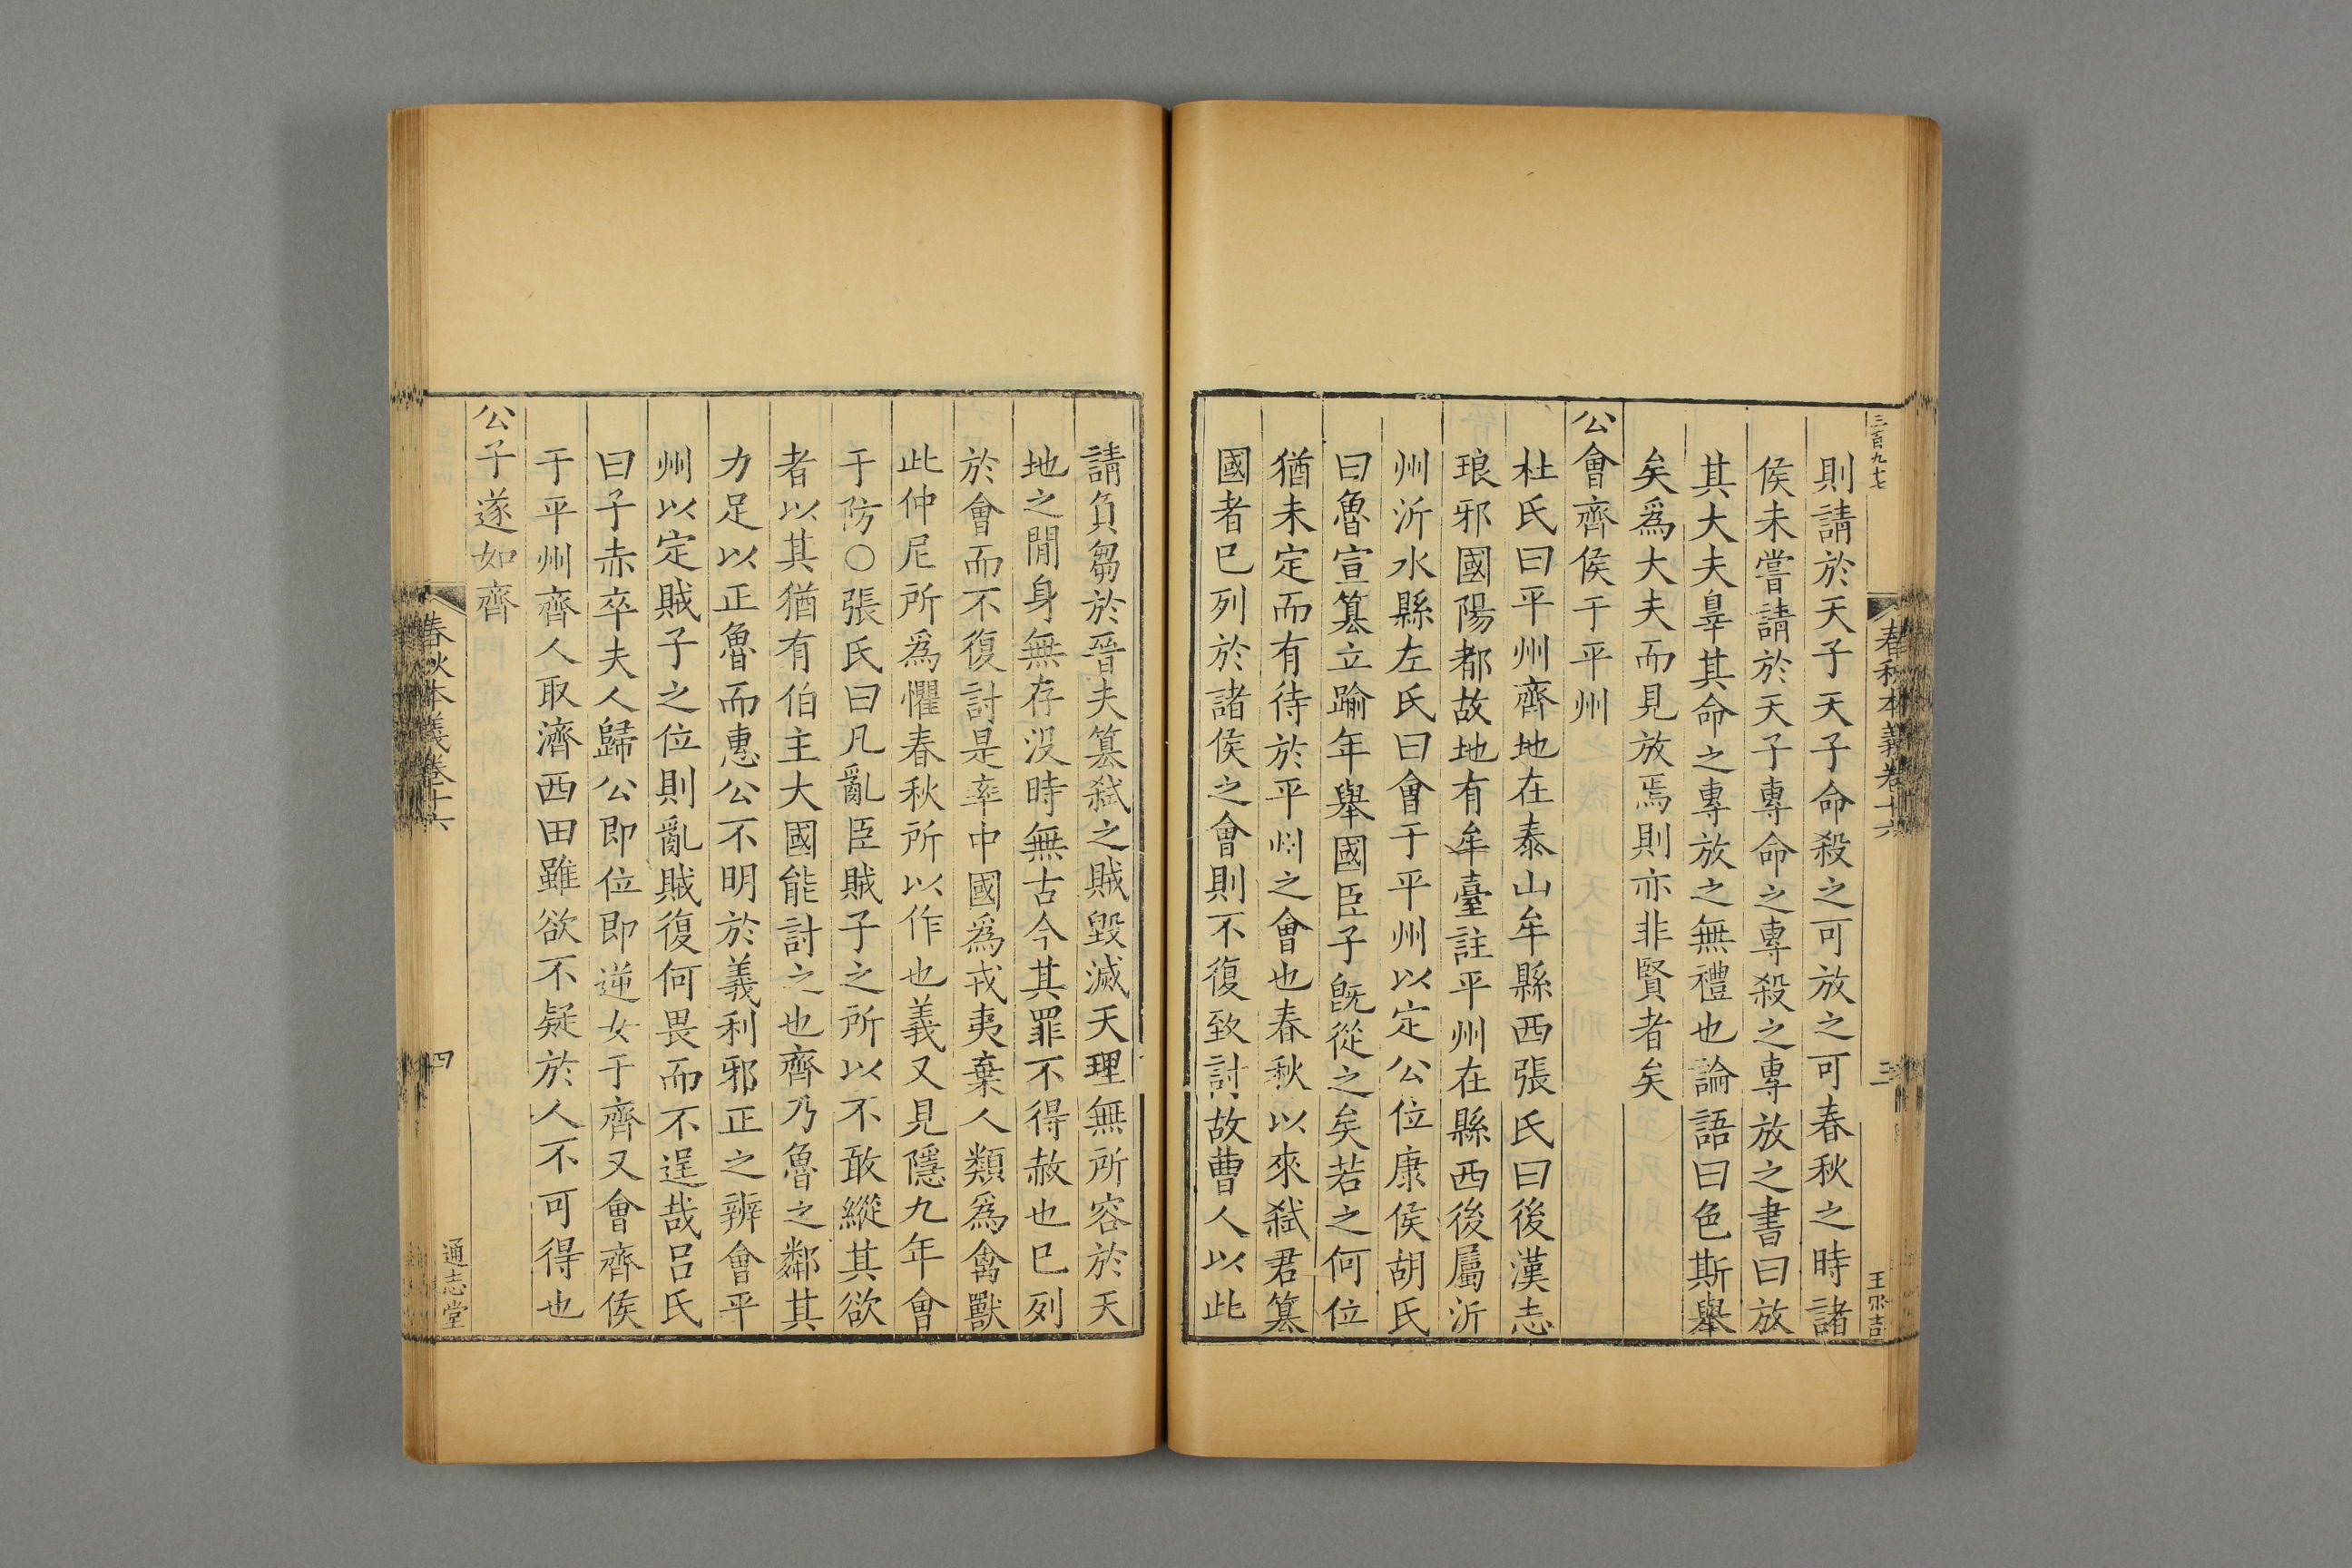 三百九七
春秋本義卷十六
三
王宗吉
則請於天子天子命殺之可放之可春秋之時諸
侯未嘗請於天子專命之專殺之專放之書曰放
其大夫辠其命之專放之無禮也論語曰色斯舉
矣爲大夫而見放焉則亦非賢者矣
公會齊侯于平州
杜氏曰平州齊地在泰山牟縣西張氏曰後漢志
琅邪國陽都故地有牟臺註平州在縣西後屬沂
州沂水縣左氏曰會于平州以定公位康侯胡氏
曰魯宣篡立踰年舉國臣子旣從之矣若之何位
猶未定而有待於平州之會也春秋以來弑君篡
國者已列於諸侯之會則不復致討故曹人以此
請負芻於晉夫篡弑之賊毀滅天理無所容於天
地之閒身無存没時無古今其罪不得赦也已列
於會而不復討是率中國爲戎夷棄人類爲禽獸
此仲尼所爲懼春秋所以作也義又見隱九年會
于防〇張氏曰凡亂臣賊子之所以不敢縱其欲
者以其猶有伯主大國能討之也齊乃魯之鄰其
力足以正魯而惠公不明於義利邪正之辨會平
州以定賊子之位則亂賊復何畏而不逞哉呂氏
曰子赤卒夫人歸公即位即逆女于齊又會齊侯
于平州齊人取濟西田雖欲不疑於人不可得也
公子遂如齊
春秋本義卷十六
四
通志堂